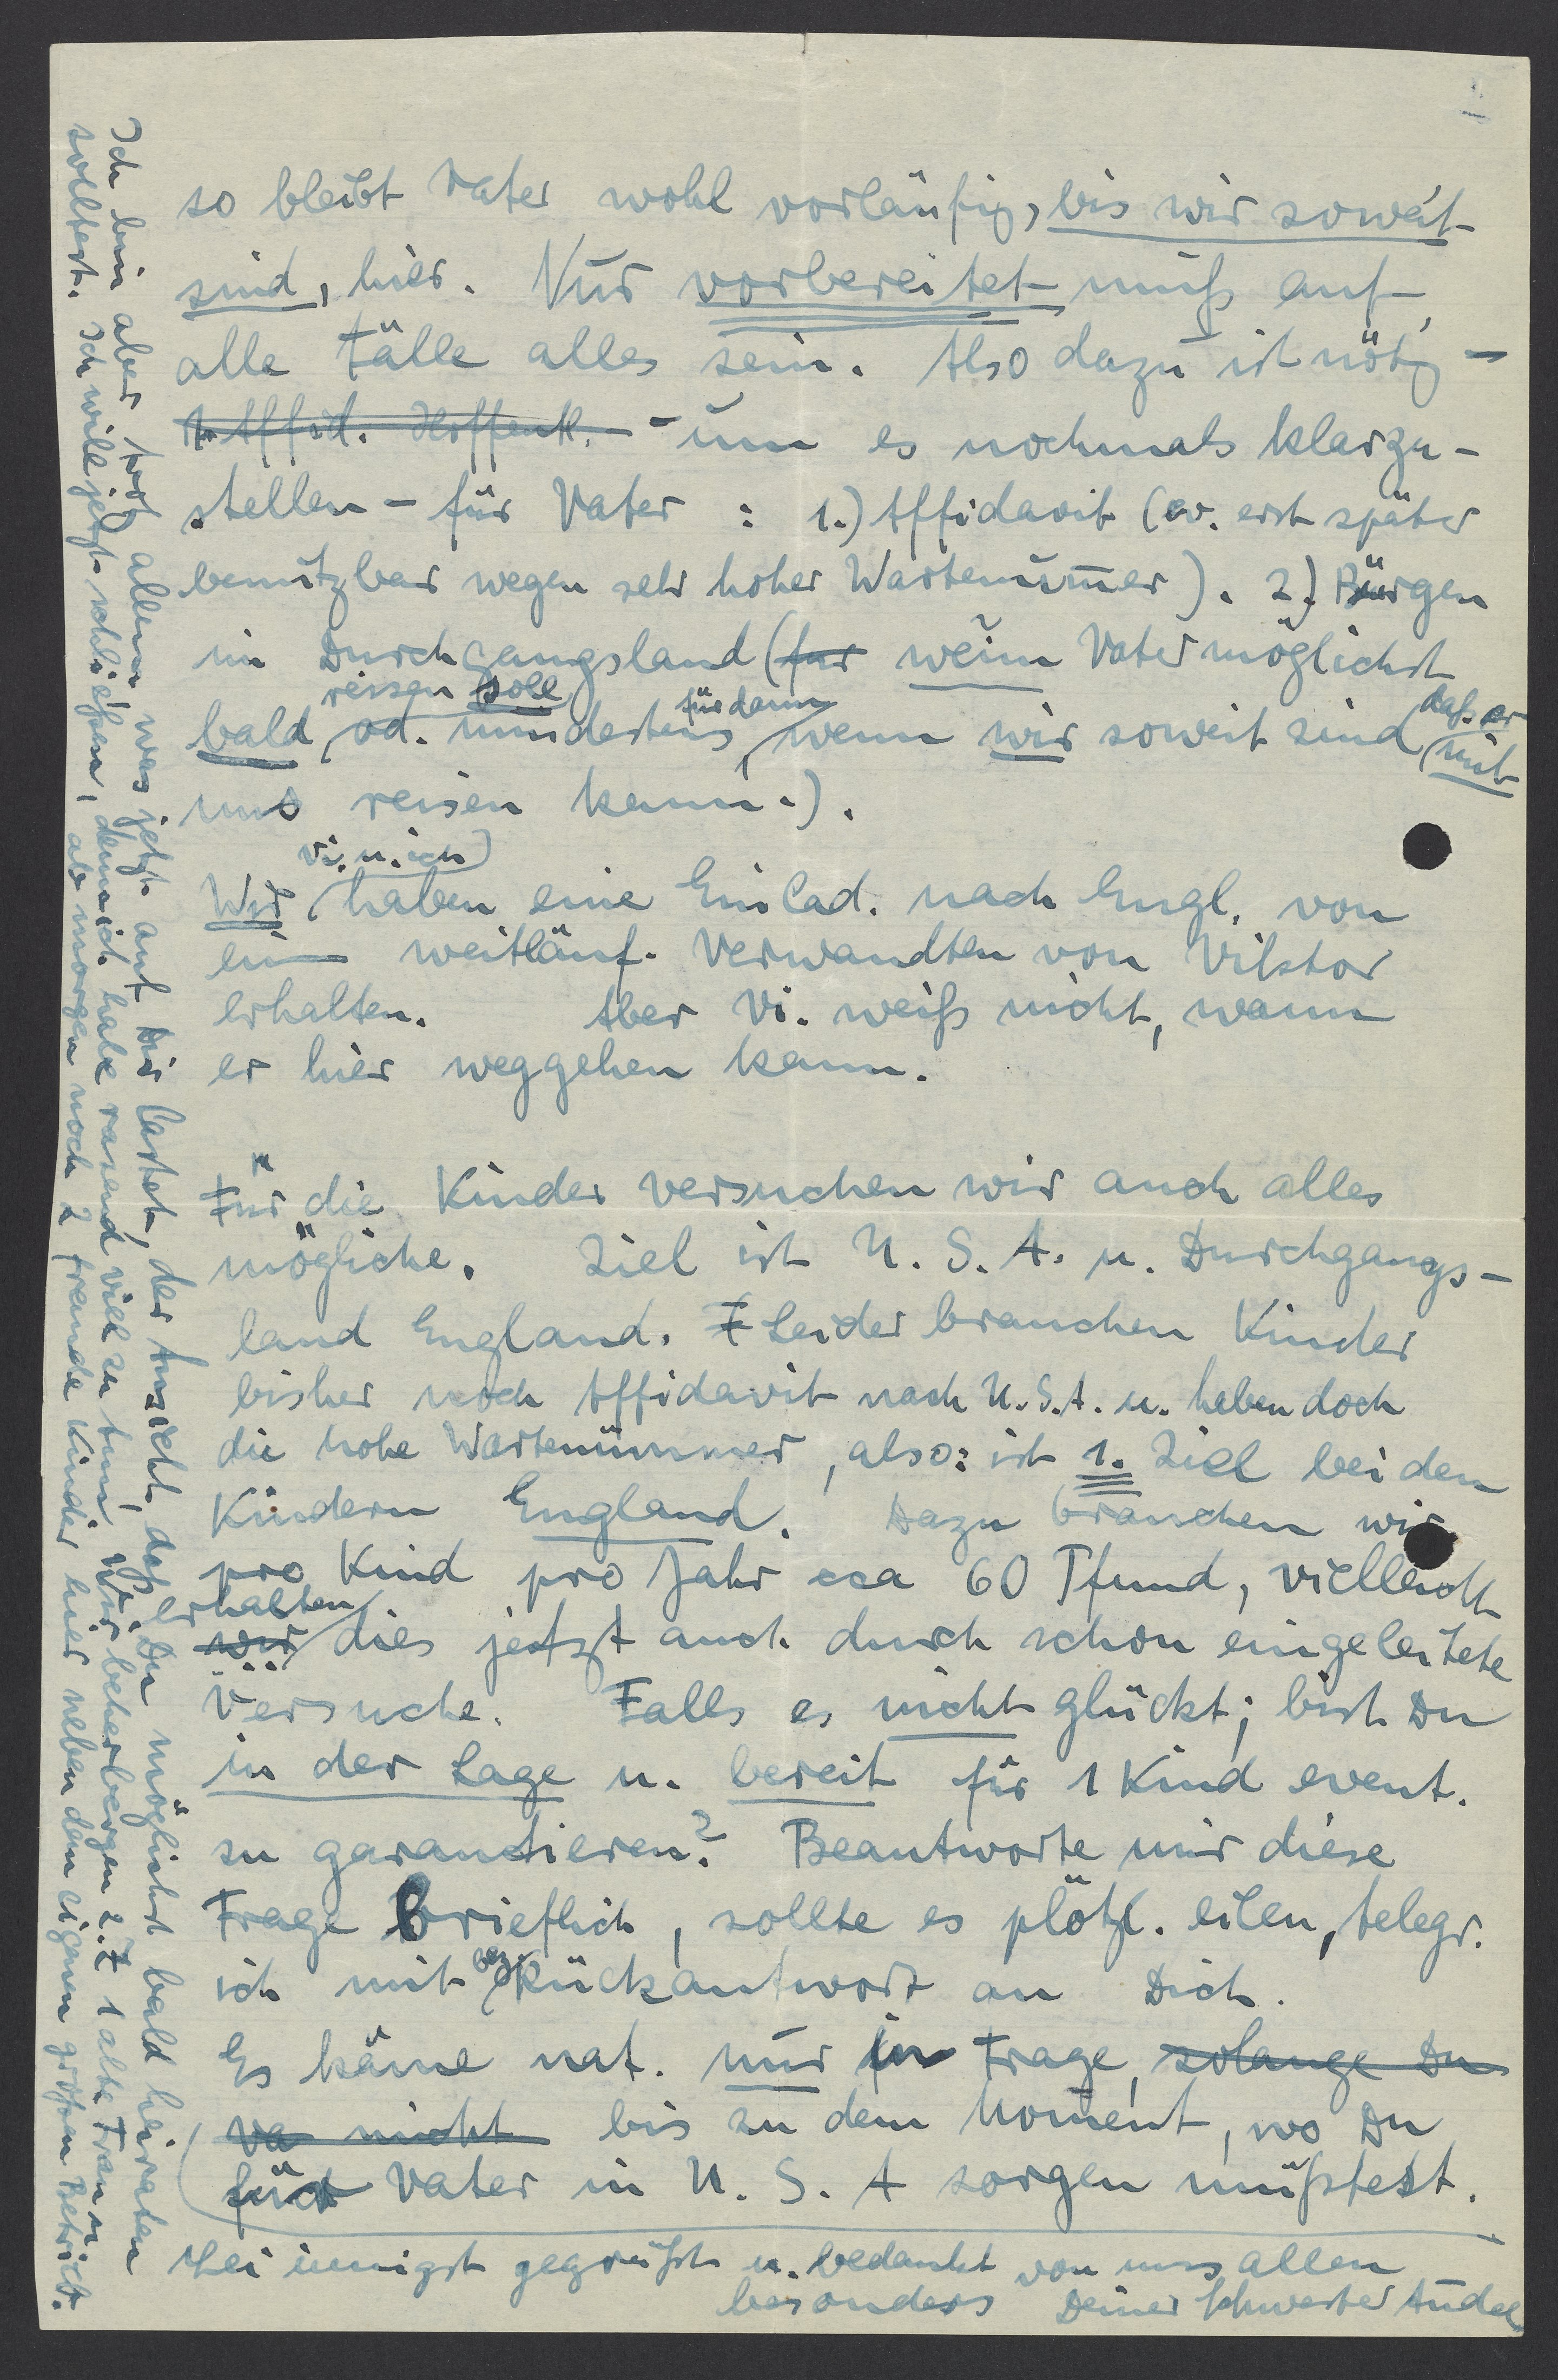 so bleibt Vater wohl vorläufig, bis wir soweit
sind, hier. Nur vorbereitet muß auf
alle Fälle alles sein. Also dazu ist nötig –
1. Affid. Hoffentl. – um es nochmals klarzu-
stellen – für Vater : 1.) Affidavit (ev. erst später
benützbar wegen sehr hoher Wartenum̅er). 2.) Bürgen
im Durchgangsland (für wenn Vater möglichst
reisen soll für dann daß er
bald, od. mindestens, wenn wir soweit sind (mit
uns reisen kann.).
Vi. u. ich)
Wir (haben eine Einlad. nach Engl. von
ein weitläuf. Verwandten von Viktor
erhalten. Aber Vi. weiß nicht, wann
er hier weggehen kann.
Für die Kinder versuchen wir auch alles
mögliche. Ziel ist U. S. A. u. Durchgangs-
land England. Leider brauchen Kinder
bisher noch Affidavit nach U.S.A. u. haben doch
die hohe Wartenummer, also: ist 1. Ziel bei den
Kindern England. Dazu brauchen wir
pro Kind pro Jahr cca 60 Pfund, vielleicht
erhalten
wir dies jetzt auch durch schon eingeleitete
Versuche. Falls es nicht glückt; bist Du
in der Lage u. bereit für 1 Kind event.
zu garantieren? Beantworte mir diese
Frage brieflich, sollte es plötzl. eilen, telegr.
ich mit bez. Rückantwort an Dich.
Es käme nat. nur in Frage, solange Du
Va nicht bis zu dem Moment, wo Du
für Vater in U. S. A sorgen müßtest.
Sei innigst gegrüßt u. bedankt von uns allen
besonders Deiner Schwester Andel
Ich bin aber trotz allem was jetzt auf Dir lastet, der Ansicht, daß Du möglichst bald heiraten
solltest. Ich will jetzt schließen, denn ich habe rasend viel zu tun, wir beherbergen z. Z 1 alte Frau u.
ab morgen noch 2 fremde Kinder hier neben dem eigenen großen Betrieb.